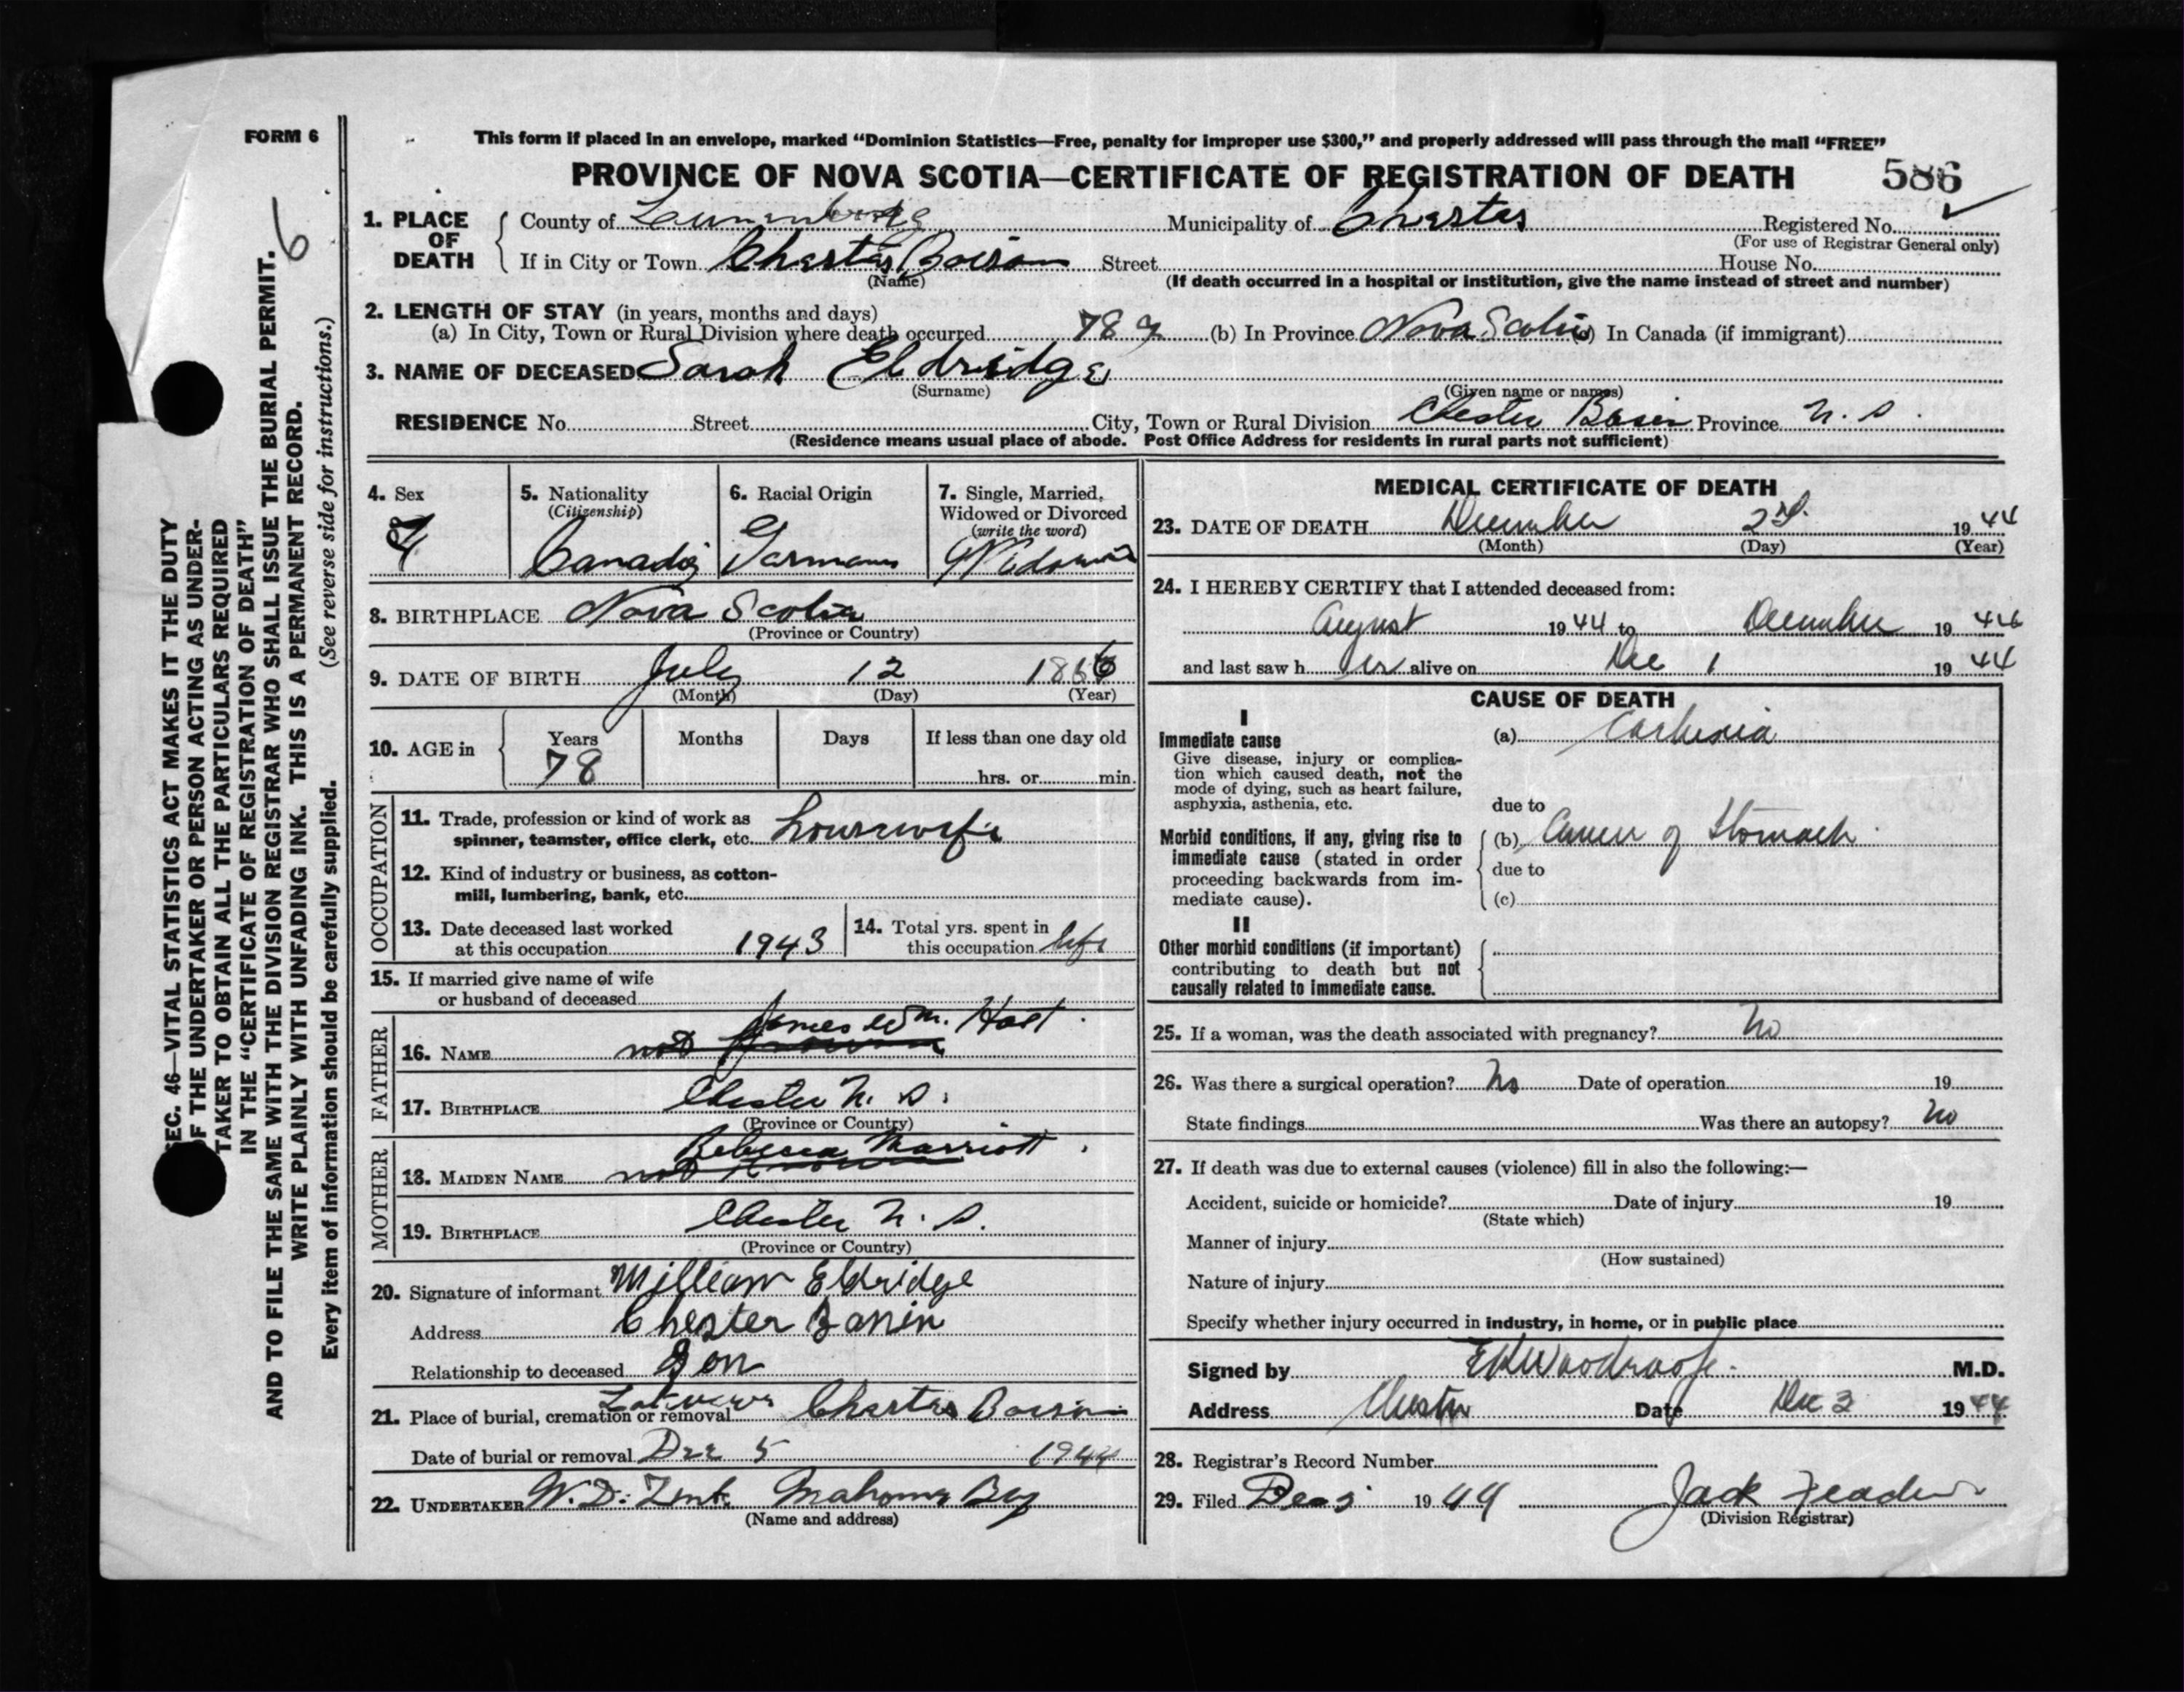 FORM 6
6
SEC. 46—VITAL STATISTICS ACT MAKES IT THE DUTY
OF THE UNDERTAKER OR PERSON ACTING AS UNDER-
TAKER TO OBTAIN ALL THE PARTICULARS REQUIRED
IN THE "CERTIFICATE OF REGISTRATION OF DEATH"
AND TO FILE THE SAME WITH THE DIVISION REGISTRAR WHO SHALL ISSUE THE BURIAL PERMIT.
WRITE PLAINLY WITH UNFADING INK. THIS IS A PERMANENT RECORD.
Every item of information should be carefully supplied. (See reverse side for instructions.)
This form if placed in an envelope, marked "Dominion Statistics—Free, penalty for improper use $300," and properly addressed will pass through the mail "FREE"
PROVINCE OF NOVA SCOTIA—CERTIFICATE OF REGISTRATION OF DEATH 586
1. PLACE OF DEATH
County of Lunenburg Municipality of Chester Registered No.
(For use of Registrar General only)
If in City or Town Chester Basin Street House No.
(Name) (If death occurred in a hospital or institution, give the name instead of street and number)
2. LENGTH OF STAY (in years, months and days)
(a) In City, Town or Rural Division where death occurred 78 y (b) In Province Nova Scotia (c) In Canada (if immigrant)
3. NAME OF DECEASED Sarah Eldridge
(Surname) (Given name or names)
RESIDENCE No. Street City, Town or Rural Division Chester Basin Province N. S.
(Residence means usual place of abode. Post Office Address for residents in rural parts not sufficient)
4. Sex
5. Nationality
(Citizenship)
Canadian
6. Racial Origin
German
7. Single, Married,
Widowed or Divorced
(write the word)
8. BIRTHPLACE Nova Scotia
(Province or Country)
9. DATE OF BIRTH July 12 1866
(Month) (Day) (Year)
10. AGE in
Years Months Days If less than one day old
78 hrs. or min.
OCCUPATION
11. Trade, profession or kind of work as
spinner, teamster, office clerk, etc. housewife
12. Kind of industry or business, as cotton-
mill, lumbering, bank, etc.
13. Date deceased last worked
at this occupation 1943
14. Total yrs. spent in
this occupation life
15. If married give name of wife
or husband of deceased
FATHER
James Wm. Hart.
16. NAME not known
17. BIRTHPLACE Chester N. S.
(Province or Country)
MOTHER
Rebecca Marriott.
18. MAIDEN NAME not known
19. BIRTHPLACE Chester N. S.
(Province or Country)
20. Signature of informant William Eldridge
Address Chester Basin
Relationship to deceased Son
Lakeview
21. Place of burial, cremation or removal Chester Basin
Date of burial or removal Dec 5 1944
22. UNDERTAKER W. D. Zink Mahone Bay
(Name and address)
MEDICAL CERTIFICATE OF DEATH
23. DATE OF DEATH December 2nd 1944
(Month) (Day) (Year)
24. I HEREBY CERTIFY that I attended deceased from:
August 1944 to December 1944
and last saw her alive on Dec 1 1944
CAUSE OF DEATH
I
Immediate cause
Give disease, injury or complica-
tion which caused death, not the
mode of dying, such as heart failure,
asphyxia, asthenia, etc.
(a) Cachexia
due to
Morbid conditions, if any, giving rise to
immediate cause (stated in order
proceeding backwards from im-
mediate cause).
(b) Cancer of Stomach.
due to
(c)
II
Other morbid conditions (if important)
contributing to death but not
causally related to immediate cause.
25. If a woman, was the death associated with pregnancy? No
26. Was there a surgical operation? No Date of operation 19
State findings Was there an autopsy? No
27. If death was due to external causes (violence) fill in also the following:—
Accident, suicide or homicide? Date of injury 19
(State which)
Manner of injury
(How sustained)
Nature of injury
Specify whether injury occurred in industry, in home, or in public place
Signed by Woodroofe M.D.
Address Chester Date Dec 3 1944
28. Registrar's Record Number
29. Filed Dec 5 1944 Jack
(Division Registrar)